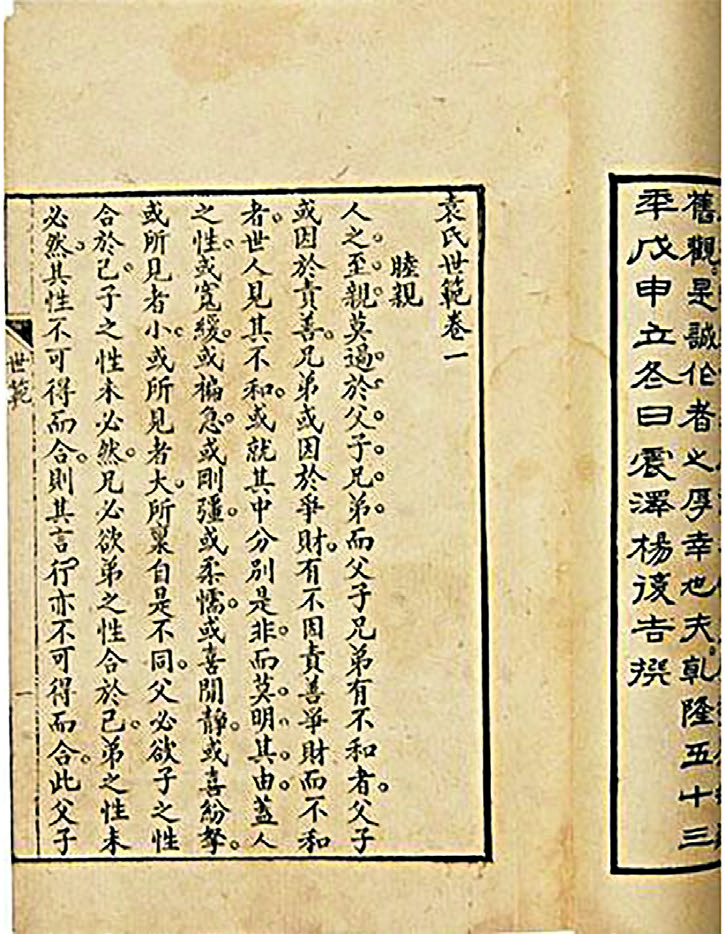 舊觀是誠作者之厚幸也夫乾隆五十三
年戊申立冬日震澤楊復吉撰
袁氏世範卷一
睦親
人之至親莫過於父子兄弟而父子兄弟有不和者父子
或因於責善兄弟或因於爭財有不因責善爭財而不和
者世人見其不和或就其中分別是非而莫明其由蓋人
之性或寬緩或褊急或剛彊或柔懦或喜閒靜或喜紛拏
或所見者小或所見者大所稟自是不同父必欲子之性
合於己子之性未必然兄必欲弟之性合於己弟之性未
必然其性不可得而合則其言行亦不可得而合此父子
世範
一